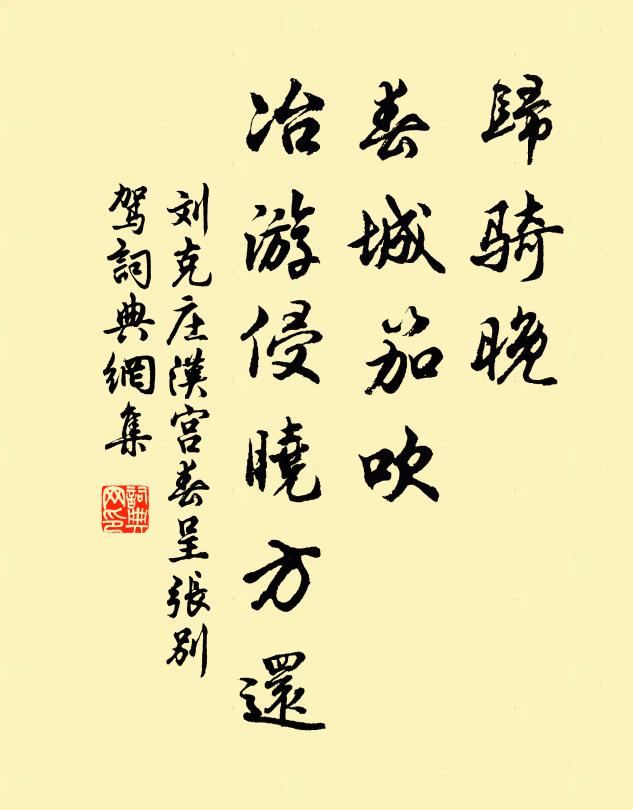 歸騎晚
春城笳吹
冶游侵曉方還
刘克庄漢宮春呈張別
駕詞典網集
詞典
网印